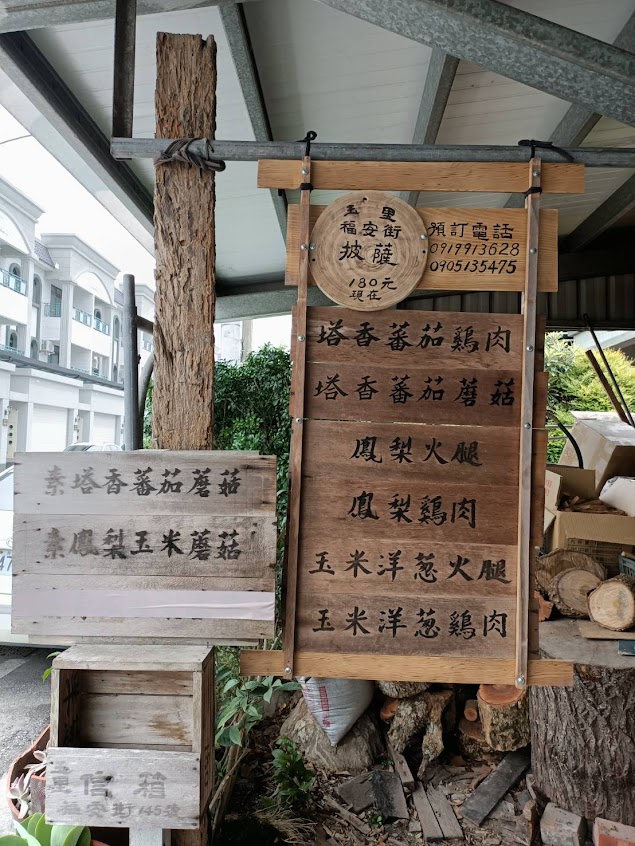 玉里
福安街
披薩
180元
現在
預訂電話
0919913628
0905135475
塔香蕃茄鷄肉
塔香蕃茄蘑菇
鳳梨火腿
鳳梨鷄肉
玉米洋蔥火腿
玉米洋蔥鷄肉
素塔香蕃茄蘑菇
素鳳梨玉米蘑菇
信箱
福安街145號